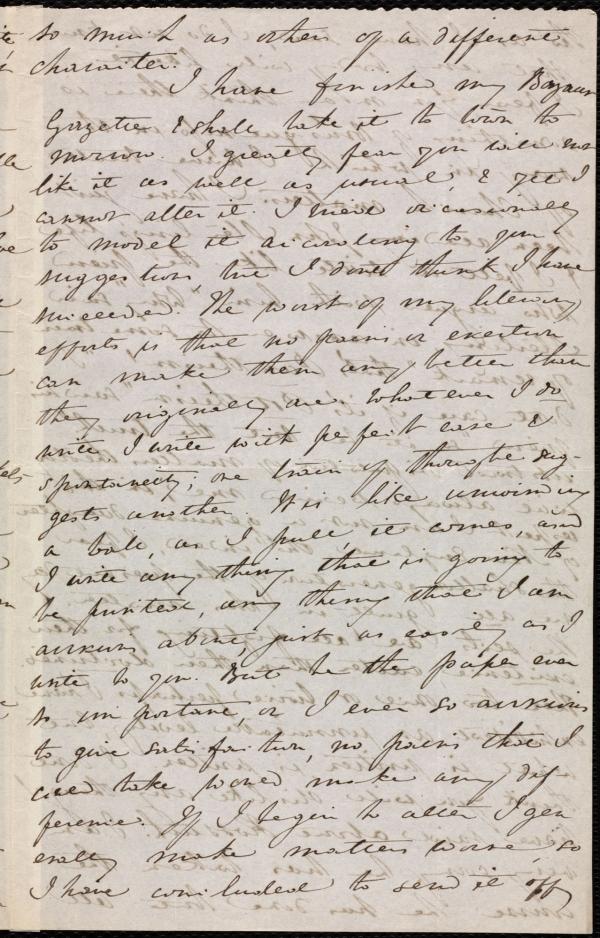 so much as others of a different
character.
I have finished my Bazaar
Gazette & shall take it to town to
morrow. I greatly fear you will not
like it as well as usual, & yet I
cannot alter it. I tried occasionally
to model it according to your
suggestions, but I don't think I have
succeeded. The worst of my literary
efforts is that no pains or exertion
can make them any better than
they originally are. Whatever I do
write I write with perfect ease &
spontaneity; one train of thought sug-
gests another. It is like unwinding
a ball, as I pull, it comes, and
I write any thing that is going to
be printed, any thing that I am
anxious about, just as easily as I
write to you. But be the paper ever
so important, or I ever so anxious
to give satisfaction, no pains that I
could take would make any dif
ference. If I begin to alter I gen
erally make matters worse, so
I have concluded to send it off